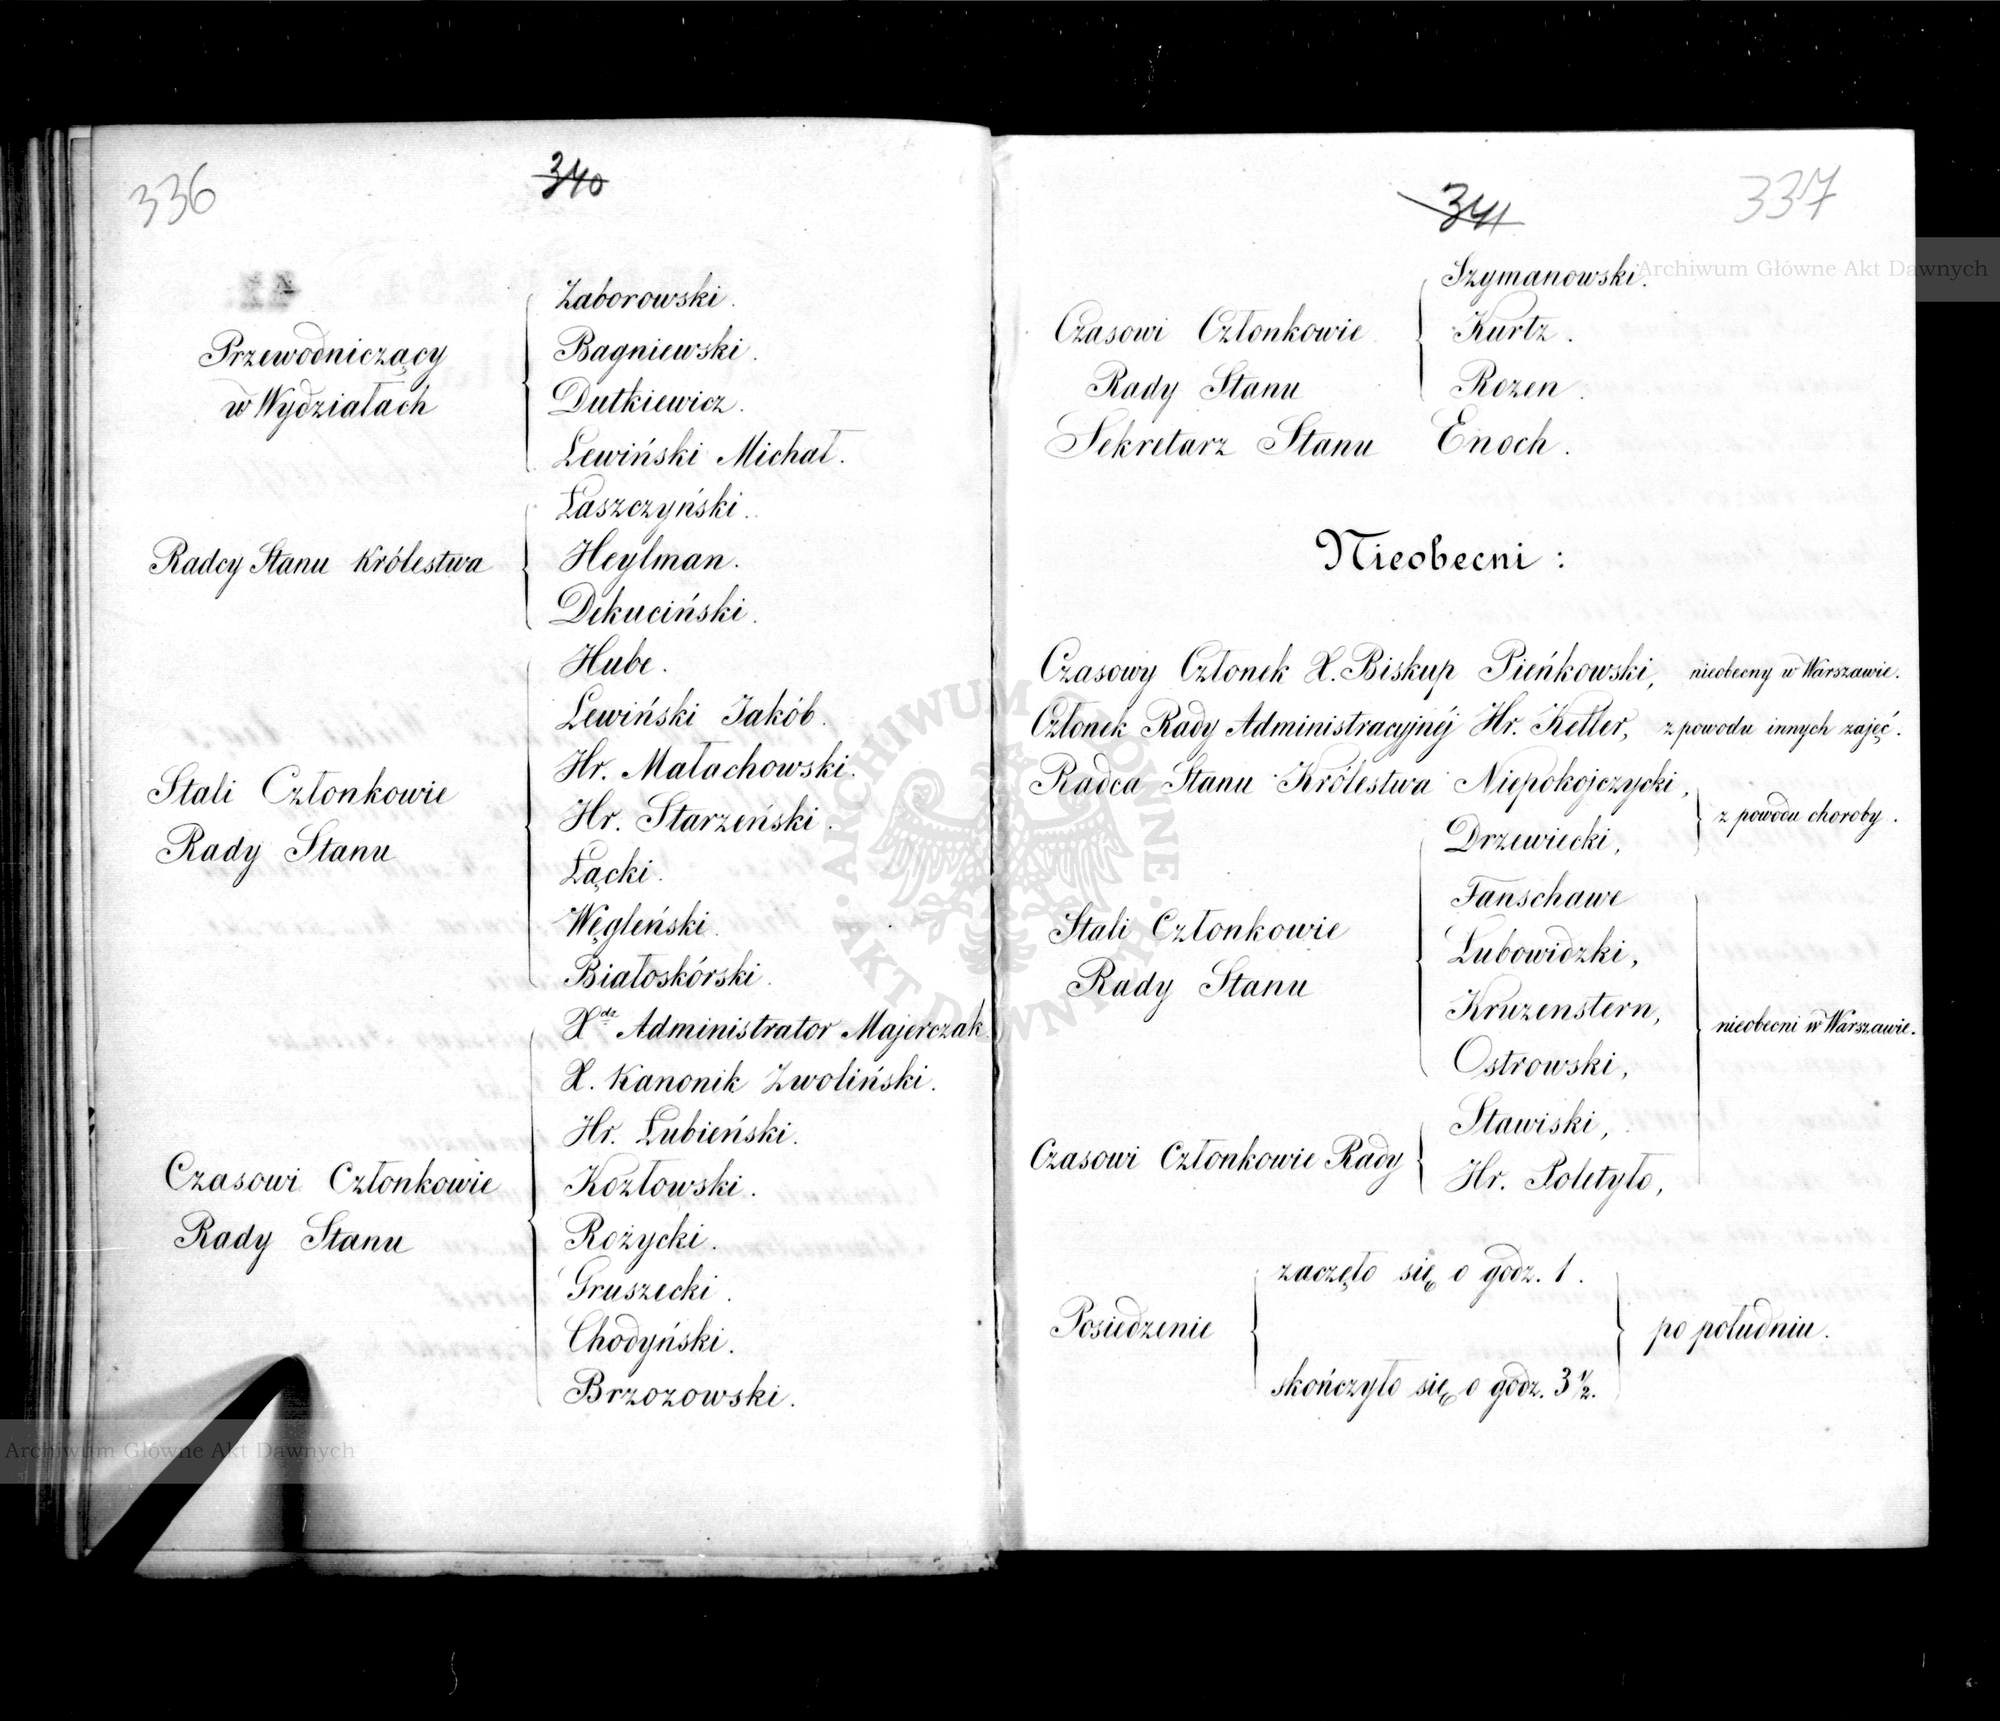 336
340
Przewodniczący
w Wydziałach
Zaborowski.
Bagniewski.
Dutkiewicz.
Lewiński Michał.
Radcy Stanu Królestwa
Łaszczyński.
Heylman.
Dekuciński.
Stali Członkowie
Rady Stanu
Hube.
Lewiński Jakób.
Hr. Małachowski.
Hr. Starzeński.
Łącki.
Węgleński.
Białoskórski.
Czasowi Członkowie
Rady Stanu
X.dz Administrator Majerczak.
X. Kanonik Zwoliński.
Hr. Łubieński.
Kozłowski.
Rożycki.
Gruszecki.
Chodyński.
Brzozowski.
341
337
Czasowi Członkowie
Rady Stanu
Szymanowski.
Kurtz.
Rozen.
Sekretarz Stanu Enoch.
Nieobecni:
Czasowy Członek X. Biskup Pieńkowski, nieobecny w Warszawie.
Członek Rady Administracyjnéj Hr. Keller, z powodu innych zajęć.
Radca Stanu Królestwa Niepokojczycki,
Drzewiecki,
z powodu choroby.
Stali Członkowie
Rady Stanu
Fanschawe
Łubowidzki,
Kruzenstern,
Ostrowski,
Czasowi Członkowie Rady
Stawiski,
Hr. Poletyło,
nieobecni w Warszawie.
Posiedzenie
zaczęło się o godz. 1.
skończyło się o godz. 3 1/2.
po południu.
Archiwum Główne Akt Dawnych
Archiwum Główne Akt Dawnych
ARCHIWUM GŁÓWNE
AKT DAWNYCH